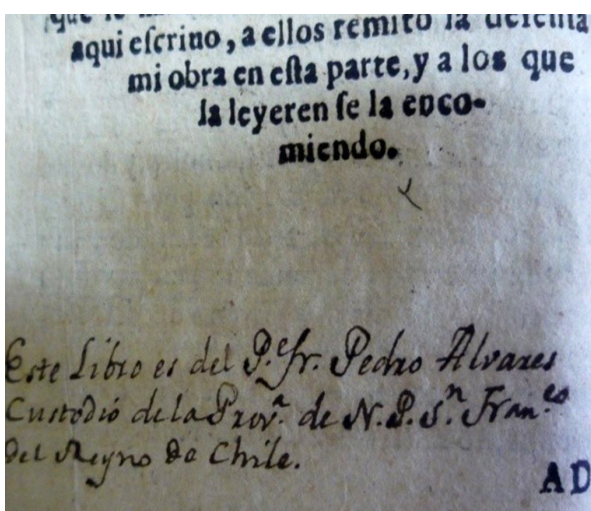 que remito la defensa
aqui escriuo, a ellos remito la defensa
mi obra en esta parte, y a los que
la leyeren se la enco-
miendo.
Este Libro es del P.e fr. Pedro Alvares
Custodio de la Prov.a de N. P. S.n Fran.co
del Reyno de Chile.
AD